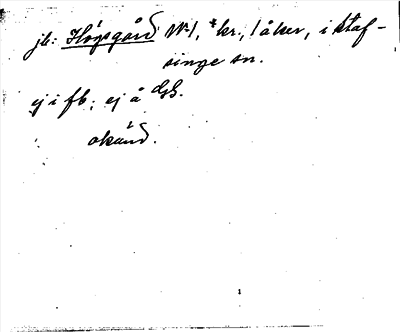 jb: Högsgård No 1, *kr., 1 åker, i Staf-
singe sn.
ej i fb; ej å dgB.
okänd.